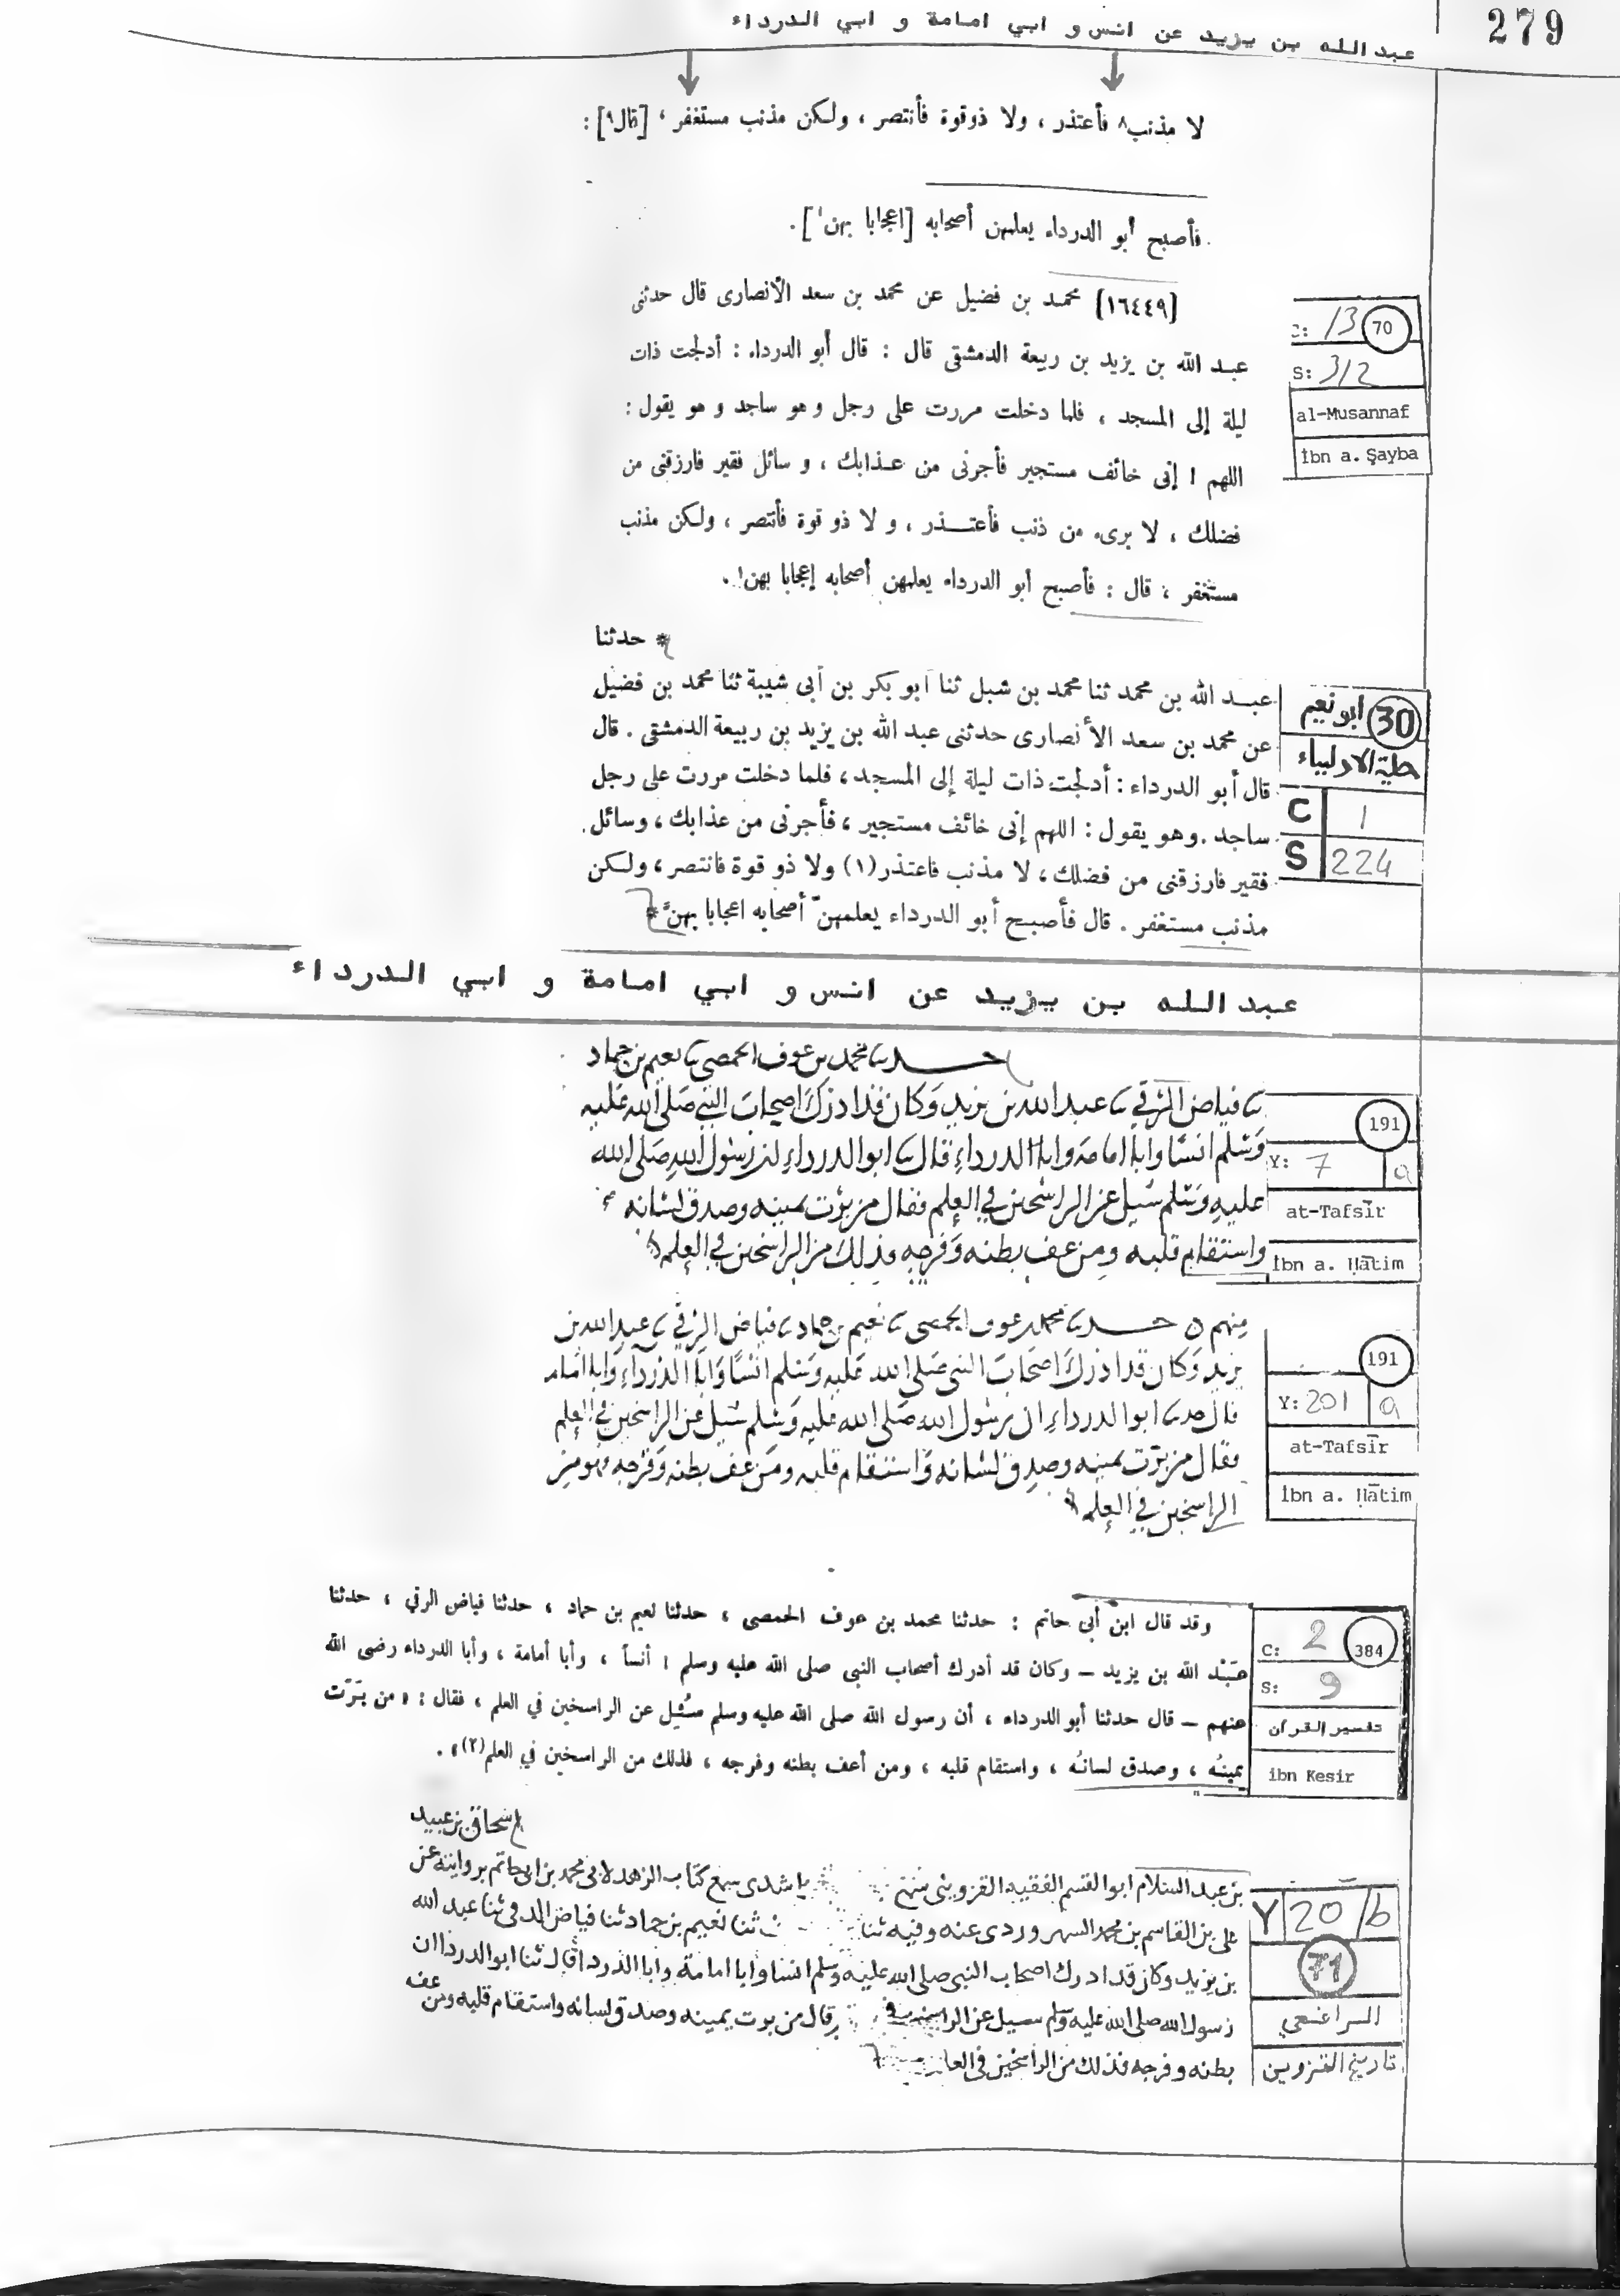 279
عبد الله بن يزيد عن انس و ابي امامة و ابي الدرداء
لا مذنب٨ فأعتذر ، ولا ذوقوة فأنتصر ، ولكن مذنب مستغفر ، [قال٩] :
فأصبح أبو الدرداء يعلمهن أصحابه [اعجابا بهن١] .
[١٦٤٤٩] محمد بن فضيل عن محمد بن سعد الأنصارى قال حدثنى
عبد الله بن يزيد بن ربيعة الدمشقى قال : قال أبو الدرداء : أدلجت ذات
ليلة إلى المسجد ، فلما دخلت مررت على رجل و هو ساجد و هو يقول :
اللهم ! إنى خائف مستجير فأجرنى من عذابك ، و سائل فقير فارزقنى من
فضلك ، لا برىء من ذنب فأعتذر ، و لا ذو قوة فأنتصر ، ولكن مذنب
مستغفر ، قال : فأصبح أبو الدرداء يعلمهن أصحابه إعجابا بهن .
C: 13 70
S: 312
al-Musannaf
İbn a. Şayba
* حدثنا
عبد الله بن محمد ثنا محمد بن شبل ثنا أبو بكر بن أبى شيبة ثنا محمد بن فضيل
عن محمد بن سعد الأنصارى حدثنى عبد الله بن يزيد بن ربيعة الدمشقى . قال
قال أبو الدرداء : أدلجت ذات ليلة إلى المسجد ، فلما دخلت مررت على رجل
ساجد . وهو يقول : اللهم إنى خائف مستجير ، فأجرنى من عذابك ، وسائل
فقير فارزقنى من فضلك ، لا مذنب فاعتذر (١) ولا ذو قوة فانتصر ، ولكن
مذنب مستغفر . قال فأصبح أبو الدرداء يعلمهنّ أصحابه اعجابا بهنّ *
ابو نعيم 30
حلية الاولياء
C 1
S 224
عبد الله بن يزيد عن انس و ابي امامة و ابي الدرداء
حدثنا محمد بن عوف الحمصي ثنا نعيم بن حماد
ثنا فياض الرقي ثنا عبد الله بن يزيد وكان قد ادرك اصحاب النبي صلى الله عليه
وسلم انسا وابا امامة وابا الدرداء قال ثنا ابو الدرداء ان رسول الله صلى الله
عليه وسلم سئل عن الراسخين في العلم فقال من برت يمينه وصدق لسانه
واستقام قلبه ومن عف بطنه وفرجه فذلك من الراسخين في العلم
191
Y: 7 a
at-Tafsīr
İbn a. Ḥātim
منهم حدثنا محمد بن عوف الحمصي ثنا نعيم بن حماد ثنا فياض الرقي ثنا عبد الله بن
يزيد وكان قد ادرك اصحاب النبي صلى الله عليه وسلم انسا وابا الدرداء وابا امامه
قال حدثنا ابو الدرداء ان رسول الله صلى الله عليه وسلم سئل عن الراسخين في العلم
فقال من برت يمينه وصدق لسانه واستقام قلبه ومن عف بطنه وفرجه فهو من
الراسخين في العلم
191
Y: 201 a
at-Tafsīr
İbn a. Ḥātim
وقد قال ابن أبى حاتم : حدثنا محمد بن عوف الحمصى ، حدثنا نعيم بن حماد ، حدثنا فياض الرقي ، حدثنا
عَبْد الله بن يزيد – وكان قد أدرك أصحاب النبى صلى الله عليه وسلم : أنساً ، وأبا أمامة ، وأبا الدرداء رضى الله
عنهم – قال حدثنا أبو الدرداء ، أن رسول الله صلى الله عليه وسلم سُئِل عن الراسخين في العلم ، فقال : « من بَرّت
يمينُه ، وصدق لسانُه ، واستقام قلبه ، ومن أعف بطنه وفرجه ، فذلك من الراسخين في العلم(٢) » .
C: 2 384
S: 9
تفسير القرآن
ibn Kesir
اسحاق بن عبيد
بن عبد السلام ابو القسم الفقيه القزويني سمع كتاب الزهد لابى محمد بن ابى حاتم بروايته عن
على بن القاسم بن محمد السهروردى عنه وفيه ثنا ثنا نعيم بن حماد ثنا فياض الدقى ثنا عبد الله
بن يزيد وكان قد ادرك اصحاب النبى صلى الله عليه وسلم انسا وابا امامة وابا الدرداء قال ثنا ابو الدرداء ان
رسول الله صلى الله عليه وسلم سيل عن الراسخين في قال من برت يمينه وصدق لسانه واستقام قلبه ومن عف
بطنه وفرجه فذلك من الراسخين فى العلم
Y 20/b
71
الرافعي
تاريخ القزوين